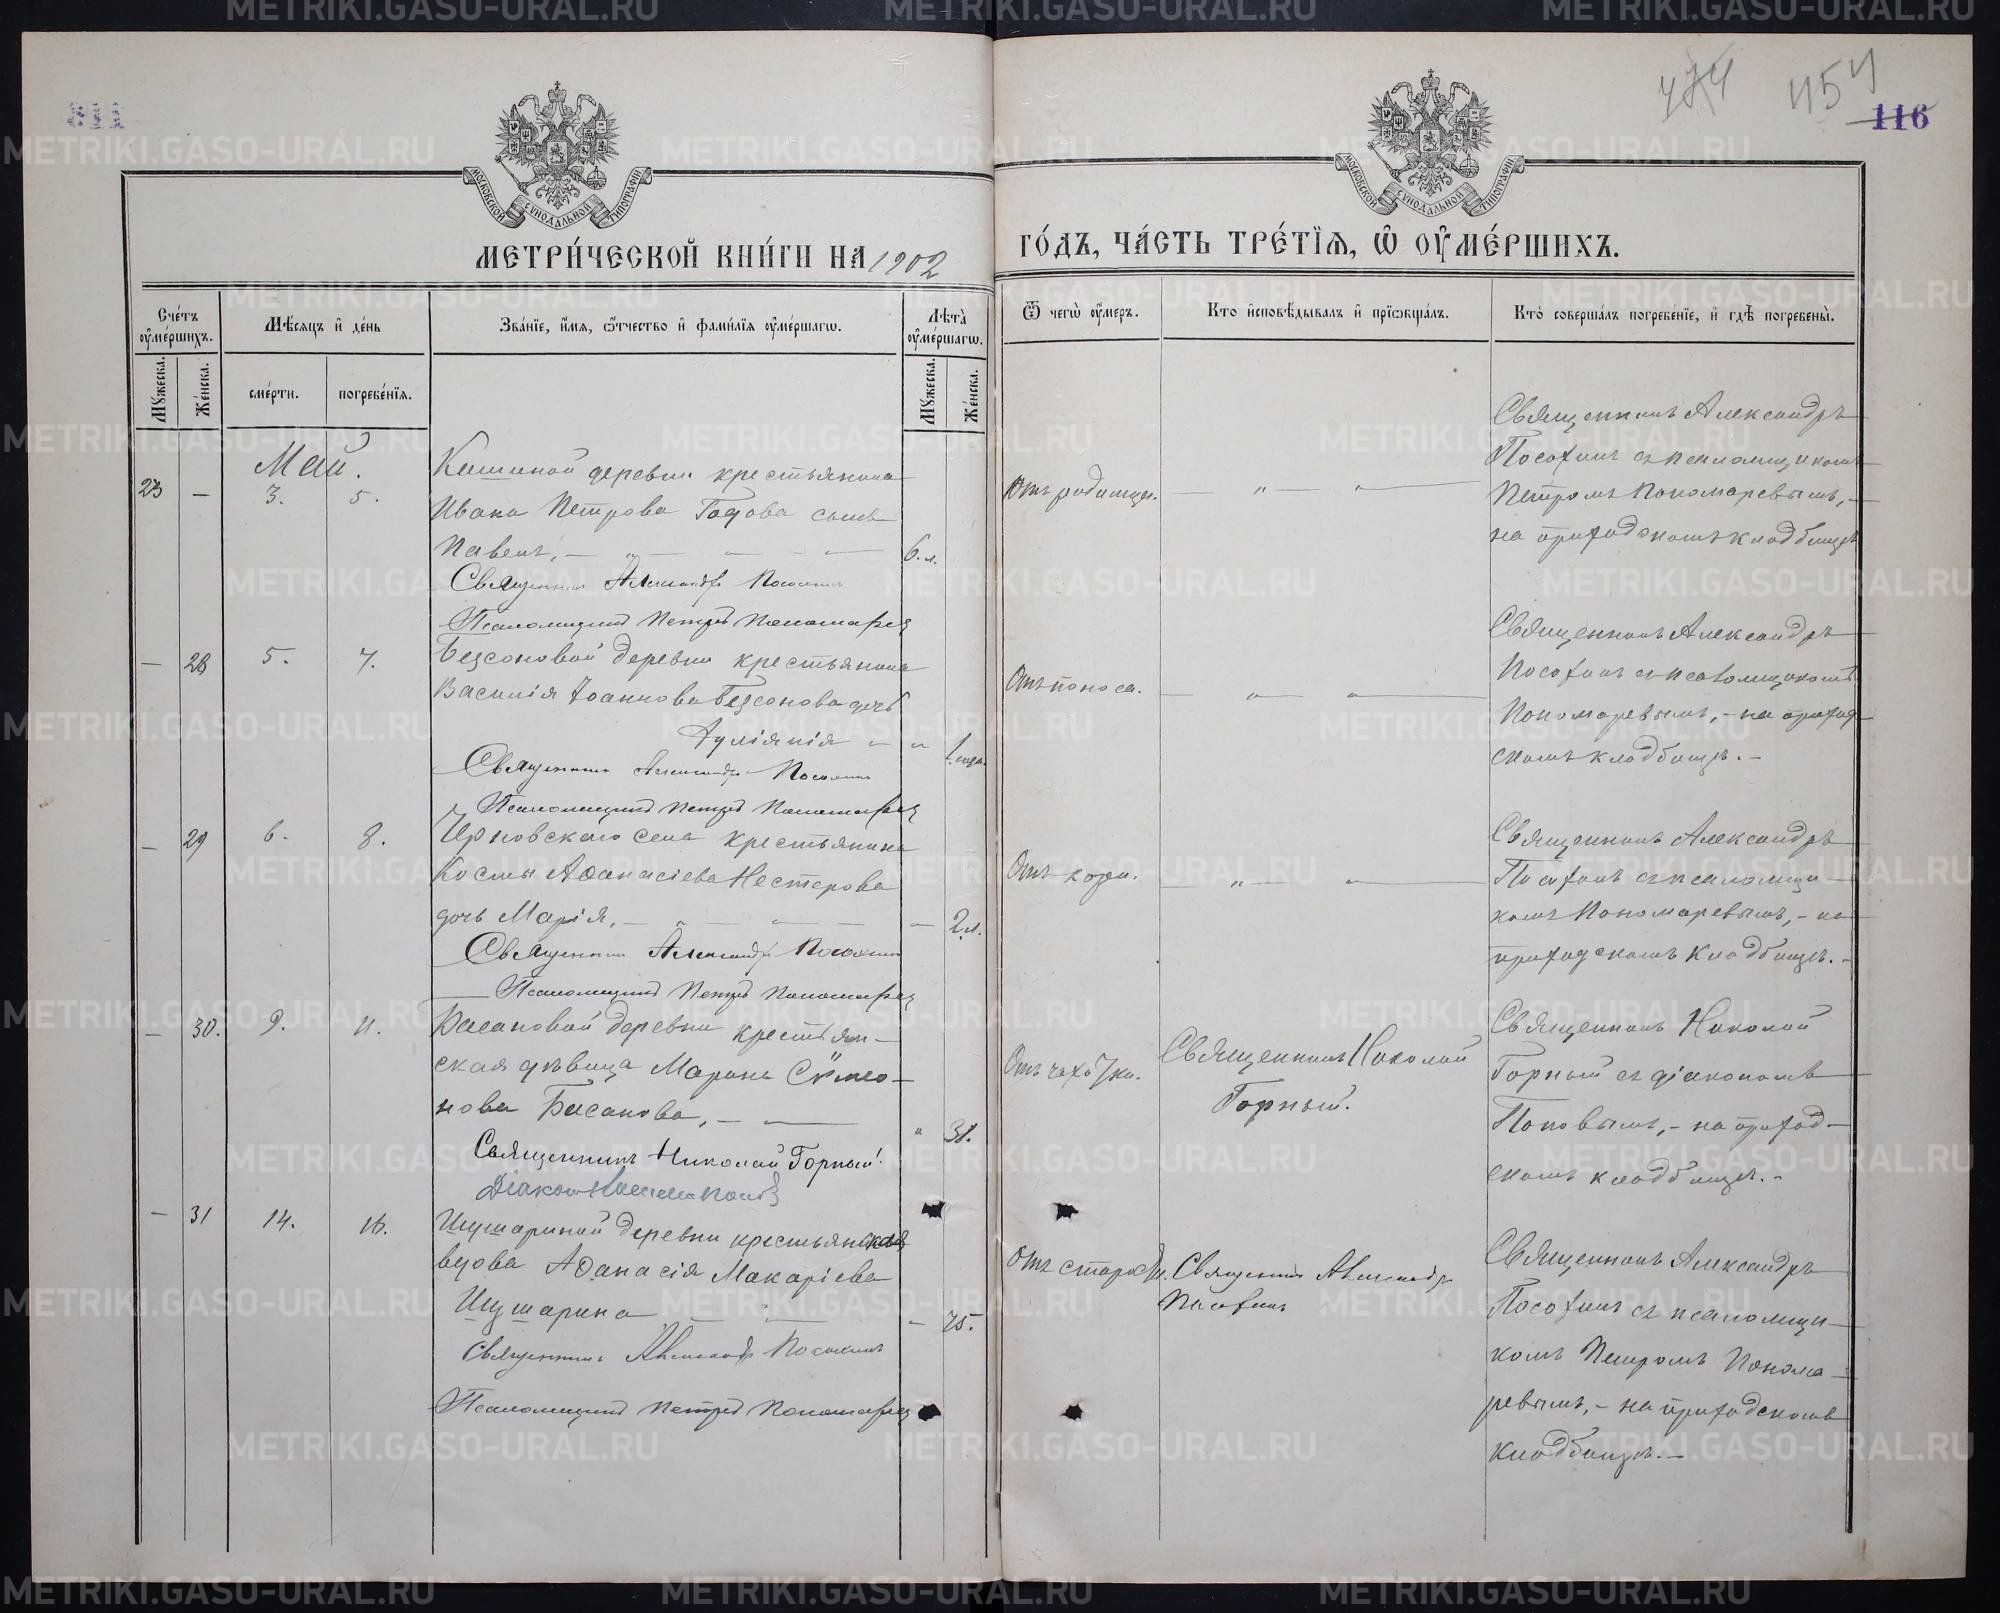 116
МЕТРИ́ЧЕСКОЙ КНИ́ГИ НА 1902
ГО́ДЪ, ЧА́СТЬ ТРЕ́ТЇѦ, Ѽ ОУ҆МЕ́РШИХЪ.
Сче́тъ оу҆ме́ршихъ.
Мѣ́сѧцъ и҆ де́нь
Зва́нїе, и҆́мѧ, ѻ҆́тчество и҆ фами́лїѧ оу҆ме́ршагѡ.
Лѣ́та оу҆ме́ршагѡ.
Ѿ чегѡ̀ оу҆́меръ.
Кто̀ и҆сповѣ́дывалъ и҆ прїѡбща́лъ.
Кто̀ соверша́лъ погребе́нїе, и҆ гдѣ̀ погребены̀.
Мꙋ́жеска.
Же́нска.
сме́рти.
погребе́нїѧ.
Мꙋ́жеска.
Же́нска.
Май.
23 — 3. 5.
деревни крестьянина
Ивана Петрова сынъ
Павелъ, — 6. л.
Священникъ Александръ Посохинъ
Псаломщикъ Петръ Пономаревъ
Отъ родимца.
Священникъ Александръ
Посохинъ съ псаломщикомъ
Петромъ Пономаревымъ, —
на приходскомъ кладбищѣ
— 28 5. 7.
Безсоновой деревни крестьянина
Василія Іоаннова Безсонова дочь
Іуліянія 1. года.
Священникъ Александръ Посохинъ
Псаломщикъ Петръ Пономаревъ
Отъ поноса.
Священникъ Александръ
Посохинъ съ псаломщикомъ
Пономаревымъ, — на приход-
скомъ кладбищѣ. —
— 29 6. 8.
села крестьянина
Космы Аѳанасіева Нестерова
дочь Марія, — 2. л.
Священникъ Александръ Посохинъ
Псаломщикъ Петръ Пономаревъ
Отъ кори.
Священникъ Александръ
Посохинъ съ псаломщи-
комъ Пономаревымъ, — на
приходскомъ кладбищѣ. —
— 30. 9. 11.
Басановой деревни крестьян-
ская дѣвица Марина Сѵмео-
нова Басанова, — 31.
Священникъ Николай Горный.
Діаконъ
Отъ чахотки.
Священникъ Николай
Горный.
Священникъ Николай
Горный съ діакономъ
Поповымъ, — на приход-
скомъ кладбищѣ. —
— 31 14. 16.
Шушариной деревни крестьянская
вдова Аѳанасія Макаріева
Шушарина — 75.
Священникъ Александръ Посохинъ
Псаломщикъ Петръ Пономаревъ
Отъ старости.
Священникъ Александръ
Посохинъ
Священникъ Александръ
Посохинъ съ псаломщи-
комъ Петромъ Понома-
ревымъ, — на приходскомъ
кладбищѣ. —
METRIKI.GASO-URAL.RU